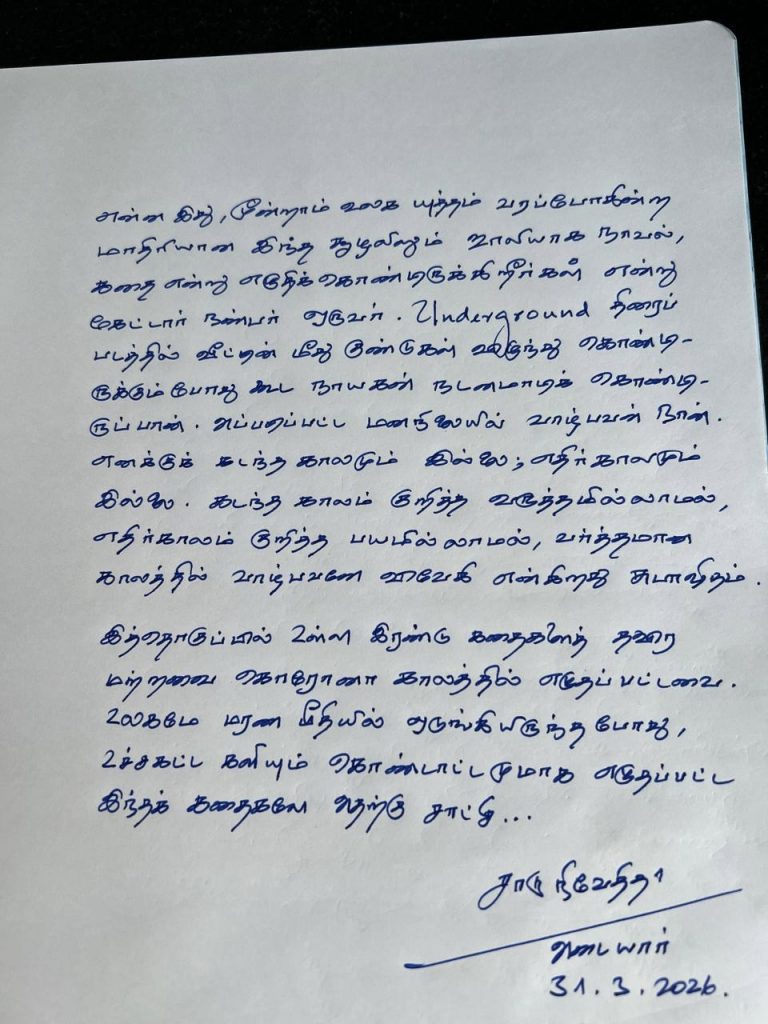 என்ன இது, மூன்றாம் உலக யுத்தம் வரப்போகின்ற
மாதிரியான இந்த சூழலிலும் ஜாலியாக நாவல்,
கதை என்று எழுதிக்கொண்டிருக்கிறீர்கள் என்று
கேட்டார் நண்பர் ஒருவர். Underground திரைப்
படத்தில் வீட்டின் மீது குண்டுகள் விழுந்து கொண்டி-
ருக்கும்போது கூட நாயகன் நடனமாடிக் கொண்டி-
ருப்பான். அப்படிப்பட்ட மனநிலையில் வாழ்பவன் நான்.
எனக்குக் கடந்த காலமும் இல்லை; எதிர்காலமும்
இல்லை. கடந்த காலம் குறித்த வருத்தமில்லாமல்,
எதிர்காலம் குறித்த பயமில்லாமல், வர்த்தமான
காலத்தில் வாழ்பவனே விவேகி என்கிறது சுபாஷிதம்.
இத்தொகுப்பில் உள்ள இரண்டு கதைகளைத் தவிர
மற்றவை கொரோனா காலத்தில் எழுதப்பட்டவை.
உலகமே மரண பீதியில் ஒடுங்கியிருந்த போது,
உச்சகட்ட களியும் கொண்டாட்டமுமாக எழுதப்பட்ட
இந்தக் கதைகளே அதற்கு சாட்சி...
சாரு நிவேதிதா
அடையார்
31.3.2026.